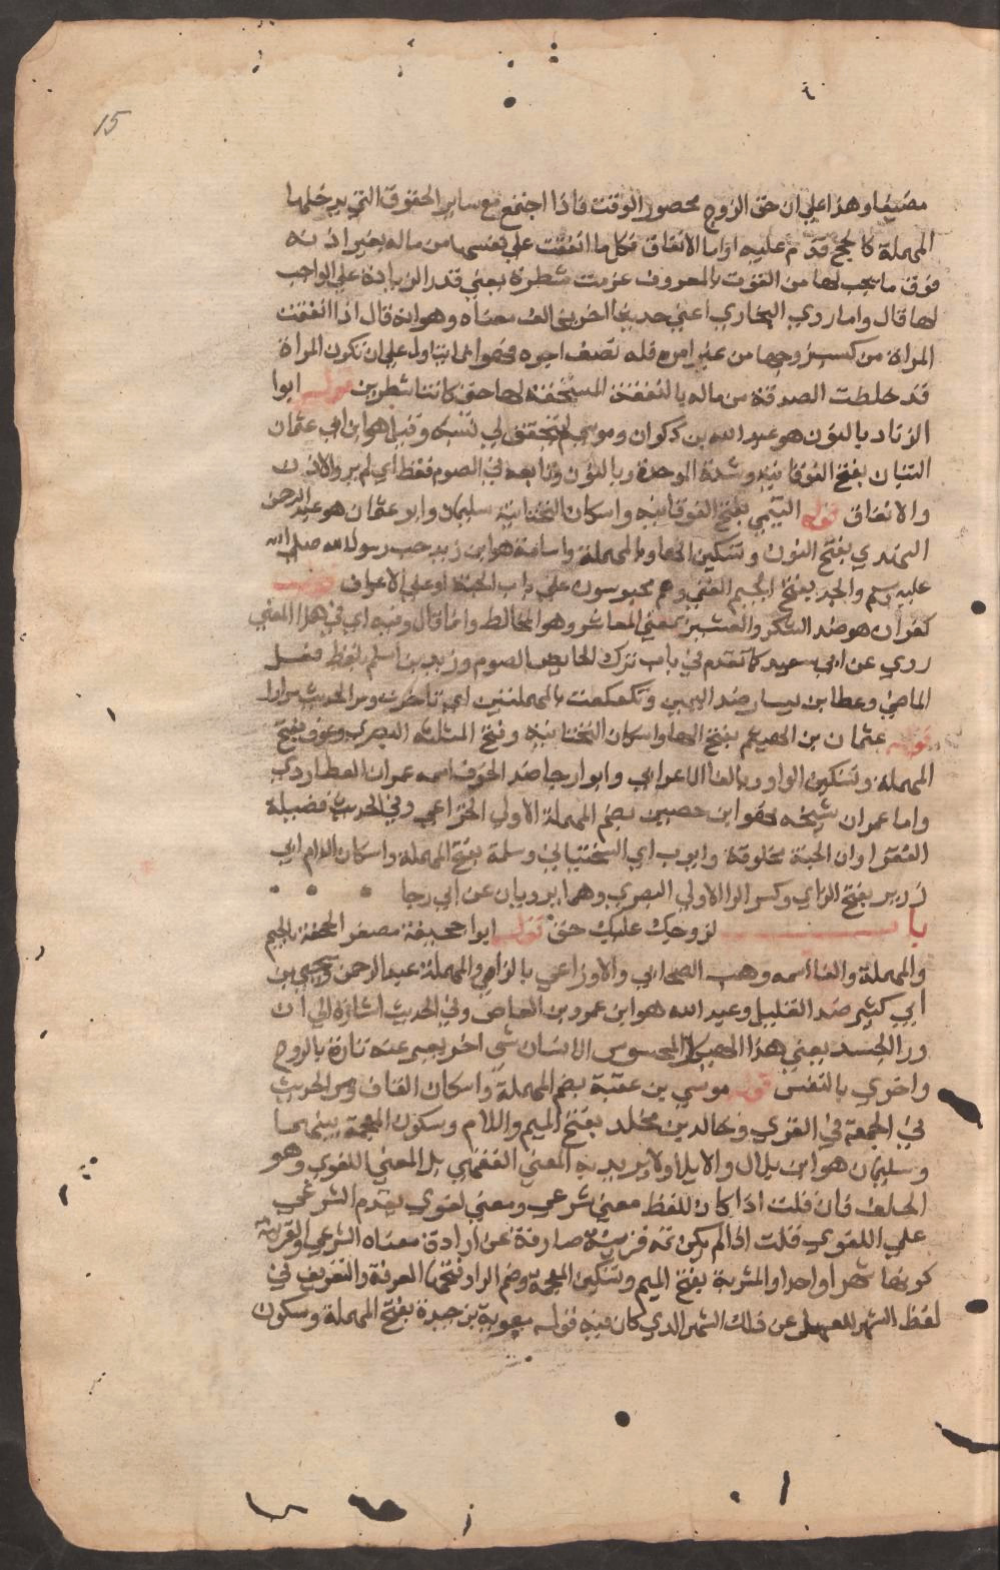 15
مضيفا وهذا علي ان حق الزوج محصور الوقت فاذا اجتمع مع ساير الحقوق التي يدخلها
المهملة كالحج قدم عليه اواما الانفاق فكل ما انفقت علي نفسها من ماله بغير اذنه
فوق ما يجب لها من القوت بالمعروف غرمت شطره يعني قدر الزيادة علي الواجب
لها قال واما روي البخاري اعني حديثا اخر يخالف معناه وهو انه قال اذا انفقت
المراة من كسب زوجها من غير امره فله نصف اجره فهو انما يتاول علي ان تكون المراة
قد خلطت الصدقة من ماله بالنفقة المستحقة لها حتى كانتا شطرين قوله ابوا
الزناد بالنون هو عبد الله بن ذكوان وموسي لم يتحقق لي نسبه وقيل هو ابن ابي عثمان
التبان بفتح الفوقانية وشدة الموحدة وبالنون وتابعه في الصوم فقط اي لم يرو الاذن
والانفاق قوله التيمي بفتح الفوقانية واسكان التحتانية سليمان وابو عثمان هو عبد الرحمن
النهدي بفتح النون وتسكين الها وبالمهملة واسامة هو ابن زيد حب رسول الله صلى الله
عليه وسلم والجد بفتح الجيم الغني وهم محبوسون علي باب الجنة او علي الاعراف قوله
كفران هو ضد الشكر والعشير بمعني المعاشر وهو المخالط وانما قال وفيه اي في هذا المعني
روي عن ابي سعيد كما تقدم في باب ترك الحايض الصوم وزيد بن اسلم بلفظ فعل
الماضي وعطا بن يسار ضد اليمين وتكعكعت بالمهملتين اي تاخرت ومر الحديث مرارا
قوله عثمان بن الهيثم بفتح الها واسكان التحتانية وفتح المثلثة البصري وعوف بفتح
المهملة وتسكين الواو وبالفا الاعرابي وابو ارجا ضد الخوف اسمه عمران العطاردي
واما عمران شيخه فهو ابن حصين بضم المهملة الاولي الخزاعي وفي الحديث فضيلة
الفقرا وان الجنة مخلوقة وايوب اي السختياني وسلم بفتح المهملة واسكان اللام ابن
زرير بفتح الزاي وكسر الرا الاولي البصري وهما يرويان عن ابي رجا
باب لزوجك عليك حق قوله ابوا جحيفة مصغر الجحفة بالجيم
والمهملة والفا اسمه وهب الصحابي والاوزاعي بالزاي والمهملة عبد الرحمن ويحيي بن
ابي كثير ضد القليل وعبد الله هو ابن عمرو بن العاص وفي الحديث اشارة الي ان
ورا الجسد يعني هذا الهيكل المحسوس الانسان شي اخر يعبر عنه تارة بالروح
واخري بالنفس قوله موسي بن عقبة بضم المهملة واسكان القاف ومر الحديث
في الجمعة في القري وخالد بن مخلد بفتح الميم واللام وسكون المعجمة بينهما
وسليمان هو ابن بلال والايلا ولا يريد به المعني الفقهي بل المعني اللغوي وهو
الحلف فان قلت اذا كان للفظ معني شرعي ومعني لغوي يقدم الشرعي
علي اللغوي قلت اذا لم يكن ثمه قرينة صارفة عن ارادة معناه الشرعي والقرينة
كونها شهرا واحدا والمشربة بفتح الميم وتسكين المعجمة وضم الرا وفتحها الغرفة والتعريف في
لفظ الشهر للعهد عن ذلك الشهر الذي كان فيه قوله معوية بن حيدة بفتح المهملة وسكون